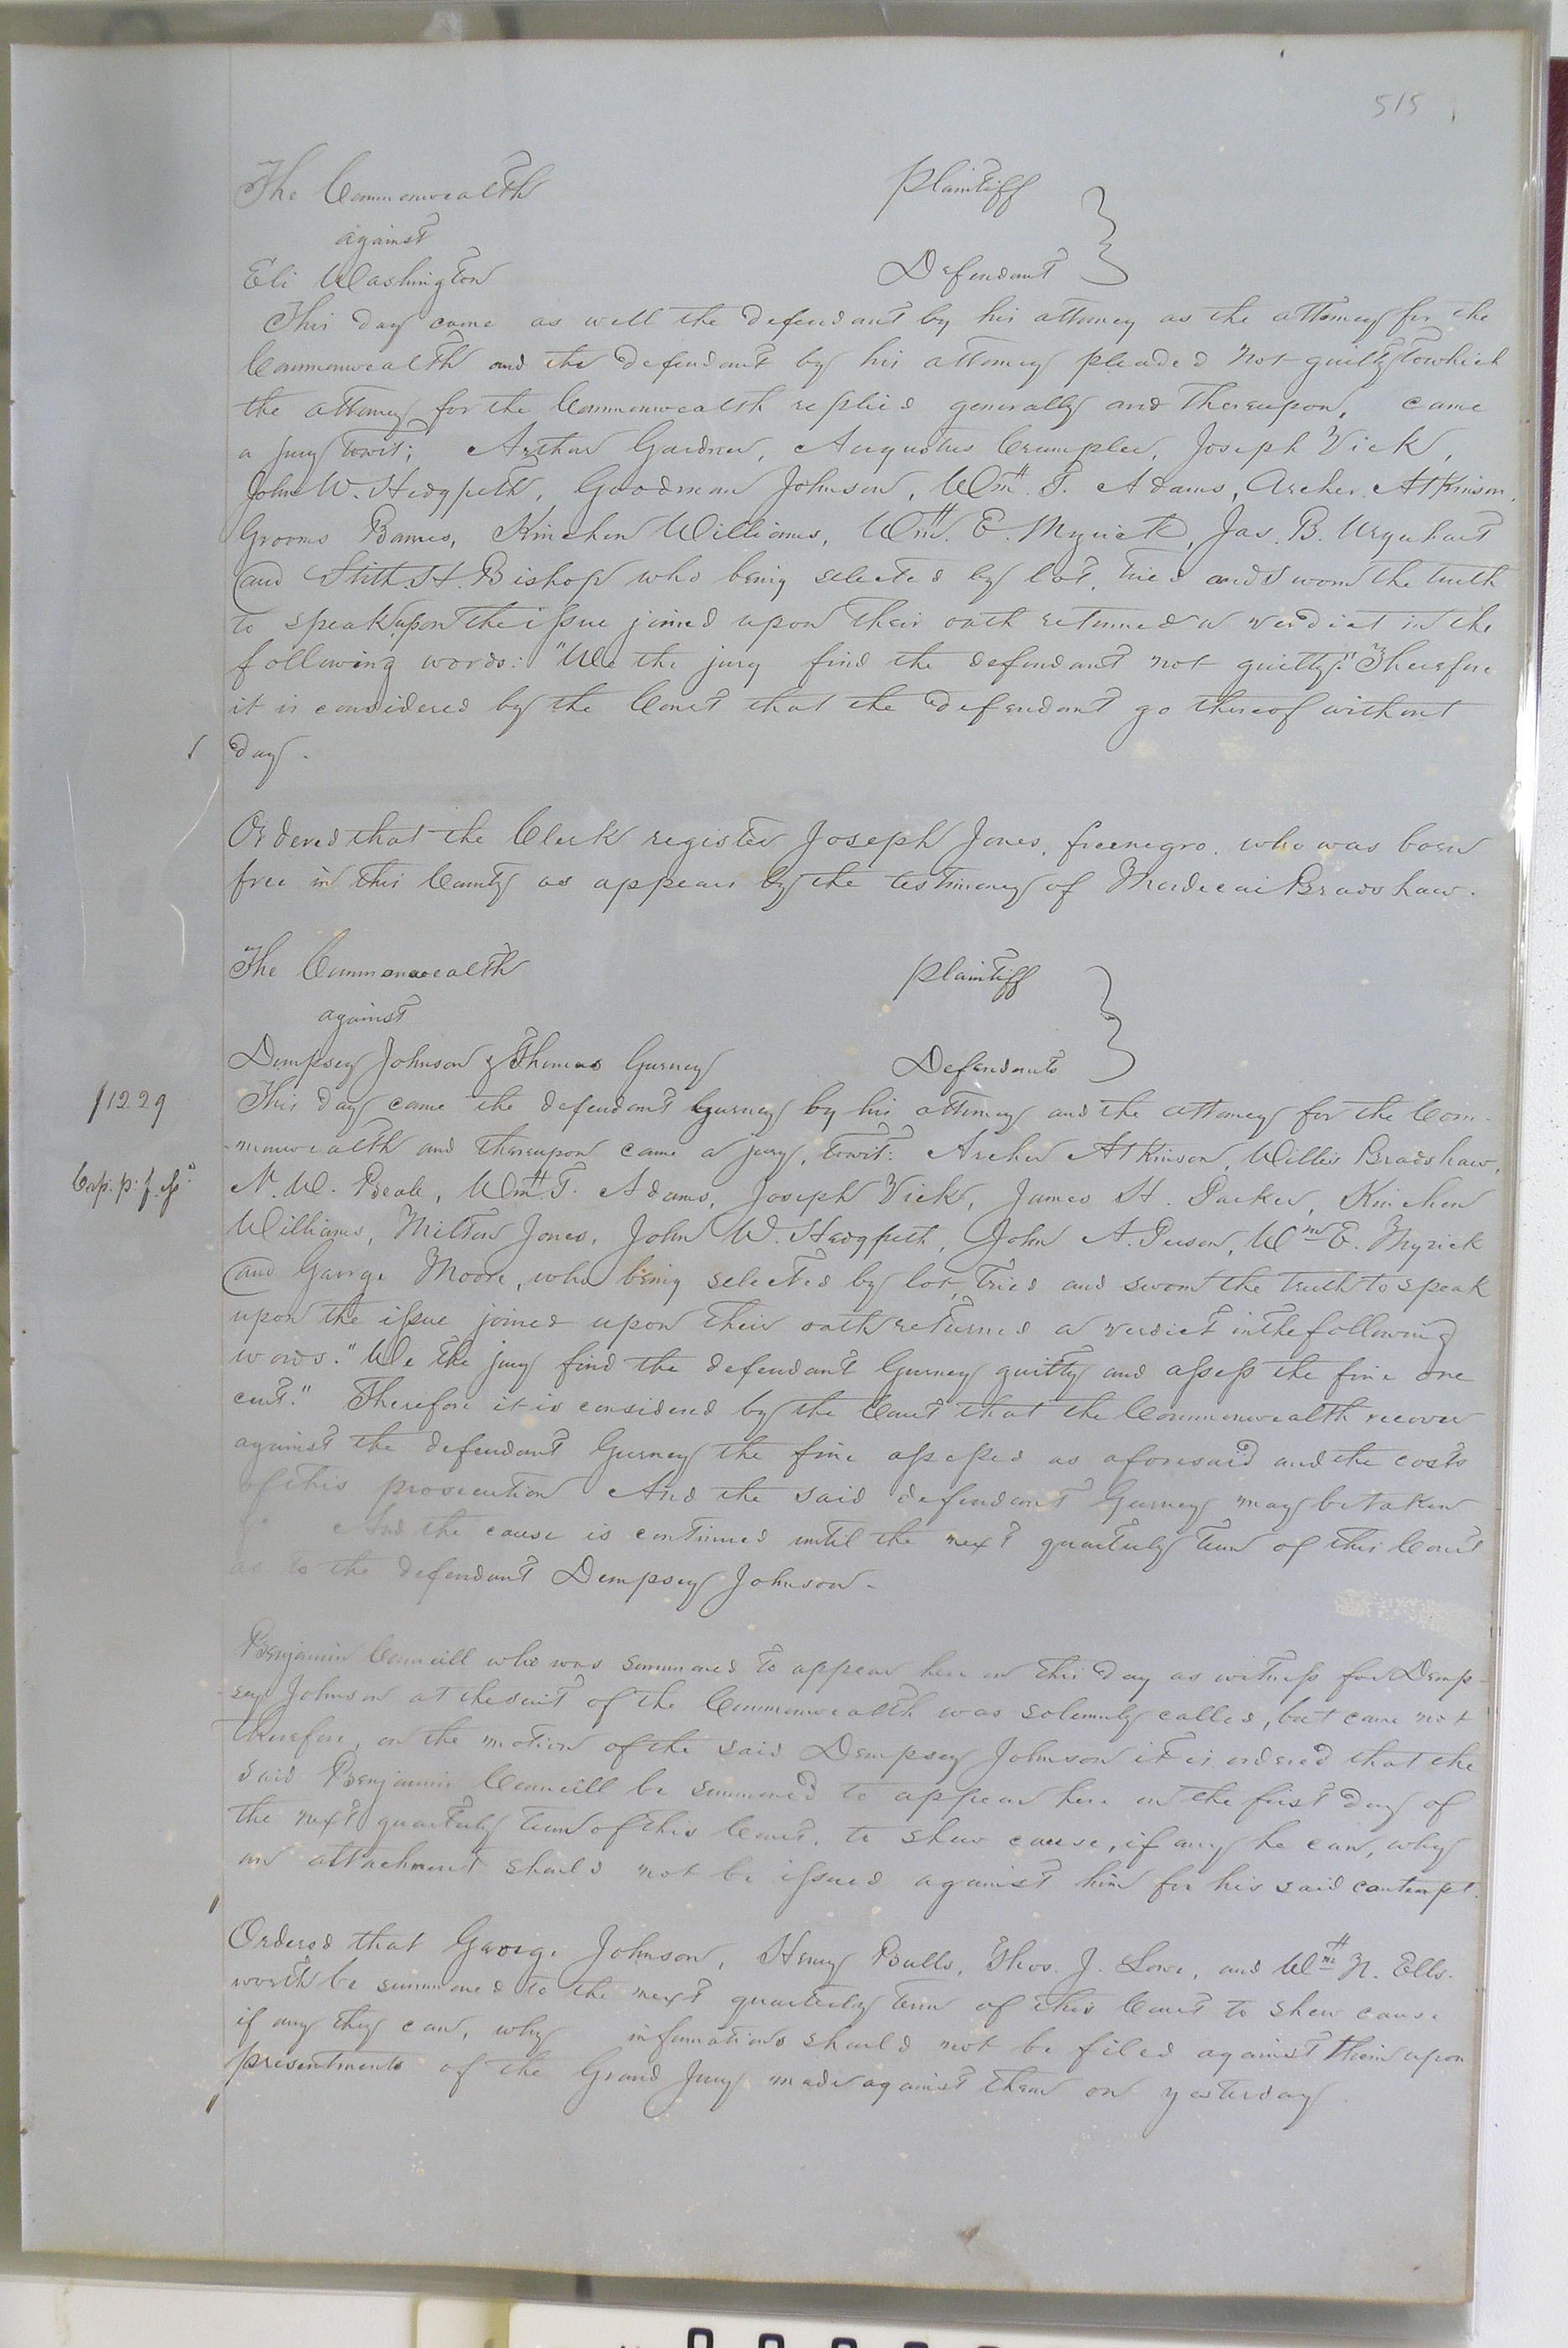 515
The Commonwealth Plaintiff
against
Eli Washington Defendant
This day came as well the defendant by his attorney as the attorney for the
Commonwealth and the defendant by his attorney pleaded not guilty to which
the attorney for the Commonwealth replied generally and Thereupon, came
a jury towit; Arthur Gardner, Augustus Crumpler, Joseph Vick,
John W. Hedgpeth, Goodman Johnson, Wm. T. Adams, Archer Atkinson,
Grooms Barnes, Kinchen Williams, Wm. E. Myrick, Jas. B. Urquhart
and Stith H. Bishop who being selected by lot, tried and sworn the truth
to speak upon the issue joined upon their oath returned a verdict in the
following words: "We the jury find the defendant not guilty." Therefore
it is considered by the Court that the defendant go thereof without
day.
Ordered that the Clerk register Joseph Jones, free negro, who was born
free in this County as appears by the testimony of Mordecai Bradshaw.
The Commonwealth Plaintiff
against
Dempsey Johnson & Thomas Gurney Defendants
1229
This day came the defendant Gurney by his attorney and the attorney for the Com-
monwealth and thereupon came a jury, towit: Archer Atkinson, Willis Bradshaw,
N. W. Beale, Wm. T. Adams, Joseph Vick, James H. Parker, Kinchen
Williams, Milton Jones, John W. Hedgpeth, John A. Person, Wm E. Myrick
and George Moore, who being selected by lot, tried and sworn the truth to speak
upon the issue joined upon their oath returned a verdict in the following
words. "We the jury find the defendant Gurney guilty and assess the fine one
cent." Therefore it is considered by the Court that the Commonwealth recover
against the defendant Gurney the fine assessed as aforesaid and the costs
of this prosecution And the said defendant Gurney may be taken
&c And the cause is continued until the next quarterly term of this Court
as to the defendant Dempsey Johnson.
Benjamin Councill who was summoned to appear here on this day as witness for Demp-
sey Johnson at the suit of the Commonwealth was solemnly called, but came not
therefore, on the motion of the said Dempsey Johnson it is ordered that the
said Benjamin Councill be summoned to appear here on the first day of
the next quarterly term of this Court, to shew cause, if any he can, why
an attachment should not be issued against him for his said contempt.
Ordered that George Johnson, Henry Bulls, Thos. J. Lowe, and Wm N. Ells-
worth be summoned to the next quarterly term of this Court to shew cause
if any they can, why informations should not be filed against them upon
presentments of the Grand Jury made against them on yesterday.